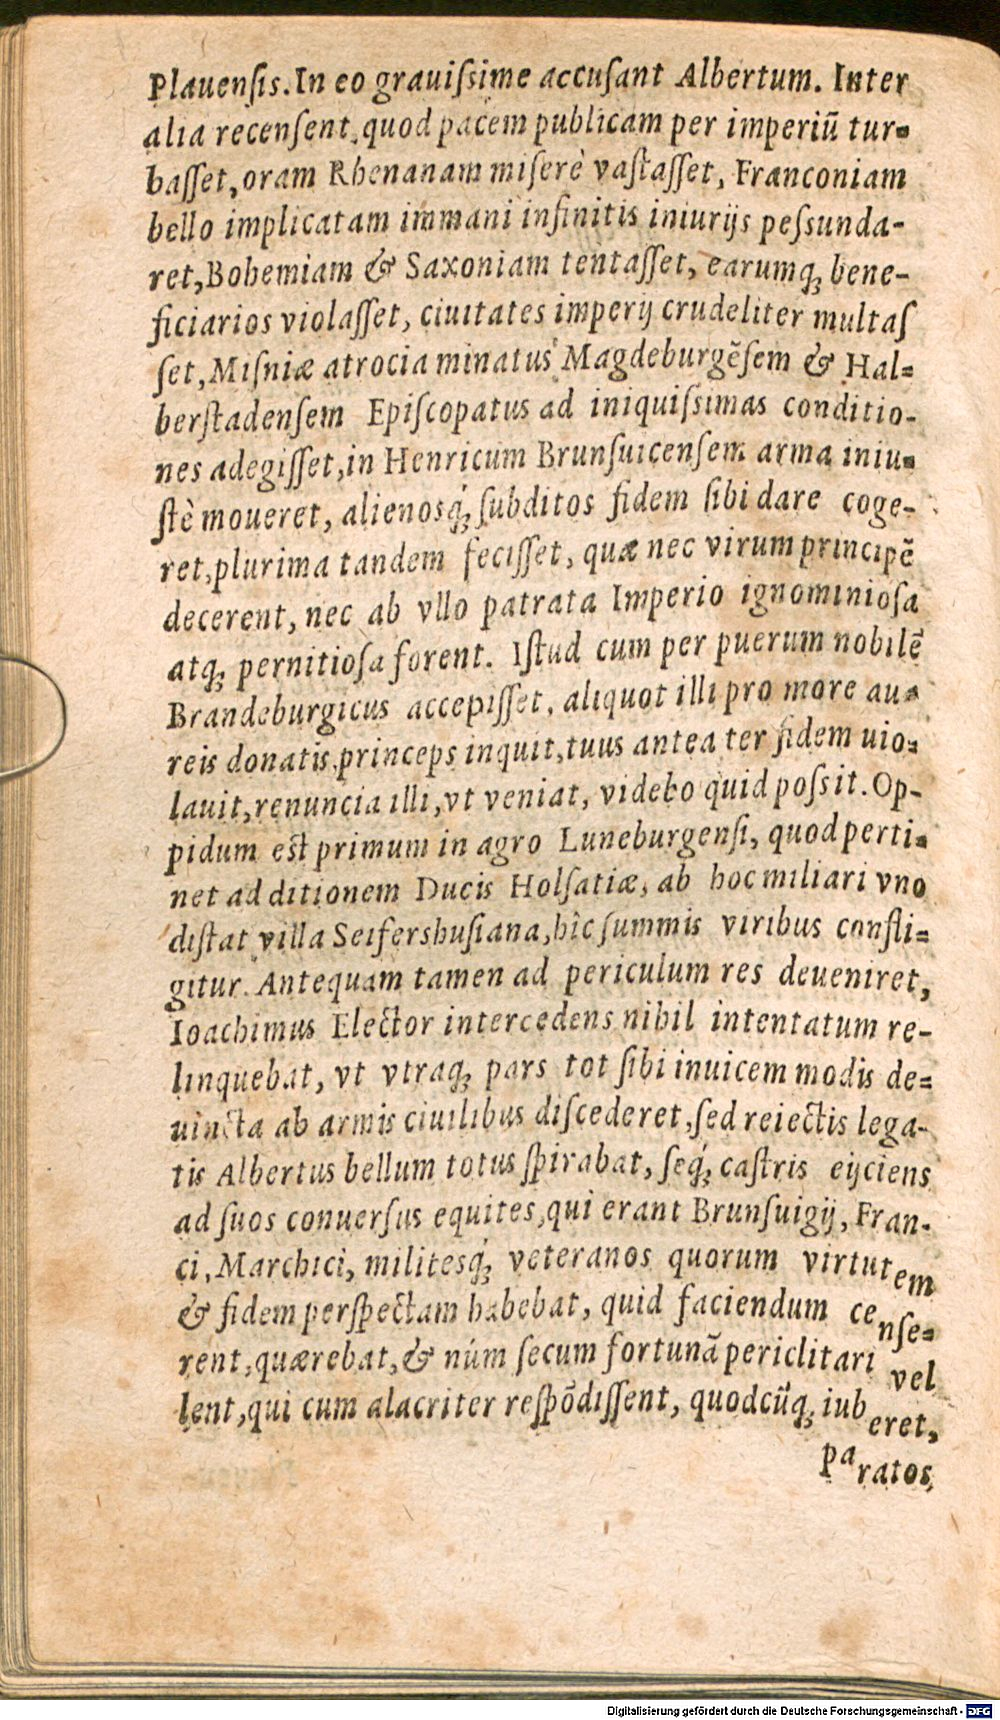 Plauenſis. In eo grauiſsime accuſant Albertum. Inter
alia recenſent, quod pacem publicam per imperiũ tur-
baſſet, oram Rhenanam miſerè vaſtaſſet, Franconiam
bello implicatam immani infinitis iniurijs peſsunda-
ret, Bohemiam & Saxoniam tentaſſet, earumq́; bene-
ficiarios violaſſet, ciuitates imperij crudeliter multaſ
ſet, Miſniæ atrocia minatus Magdeburgẽſem & Hal-
berſtadenſem Epiſcopatus ad iniquiſsimas conditio-
nes adegiſſet, in Henricum Brunſuicenſem arma iniu-
ſtè moueret, alienosq́; ſubditos fidem ſibi dare coge-
ret, plurima tandem feciſſet, quæ nec virum principẽ
decerent, nec ab vllo patrata Imperio ignominioſa
atq; pernitioſa forent. Iſtud cum per puerum nobilẽ
Brandeburgicus accepiſſet, aliquot illi pro more au-
reis donatis, princeps inquit, tuus antea ter fidem uio-
lauit, renuncia illi, vt veniat, videbo quid poſsit. Op-
pidum eſt primum in agro Luneburgenſi, quod perti-
net ad ditionem Ducis Holſatiæ, ab hoc miliari vno
diſtat villa Seifershuſiana, hîc ſummis viribus confli-
gitur. Antequam tamen ad periculum res deueniret,
Ioachimus Elector intercedens nihil intentatum re-
linquebat, vt vtraq; pars tot ſibi inuicem modis de-
uincta ab armis ciuilibus diſcederet, ſed reiectis lega-
tis Albertus bellum totus ſpirabat, ſeq́; caſtris eijciens
ad ſuos conuerſus equites, qui erant Brunſuigij, Fran-
ci, Marchici, militesq́; veteranos quorum virtutem
& fidem perſpectam habebat, quid faciendum cenſe-
rent, quærebat, & núm ſecum fortunã periclitari vel
lent, qui cum alacriter reſpõdiſſent, quodcũq; iuberet,
paratos
Digitalisierung gefördert durch die Deutsche Forschungsgemeinschaft - DFG